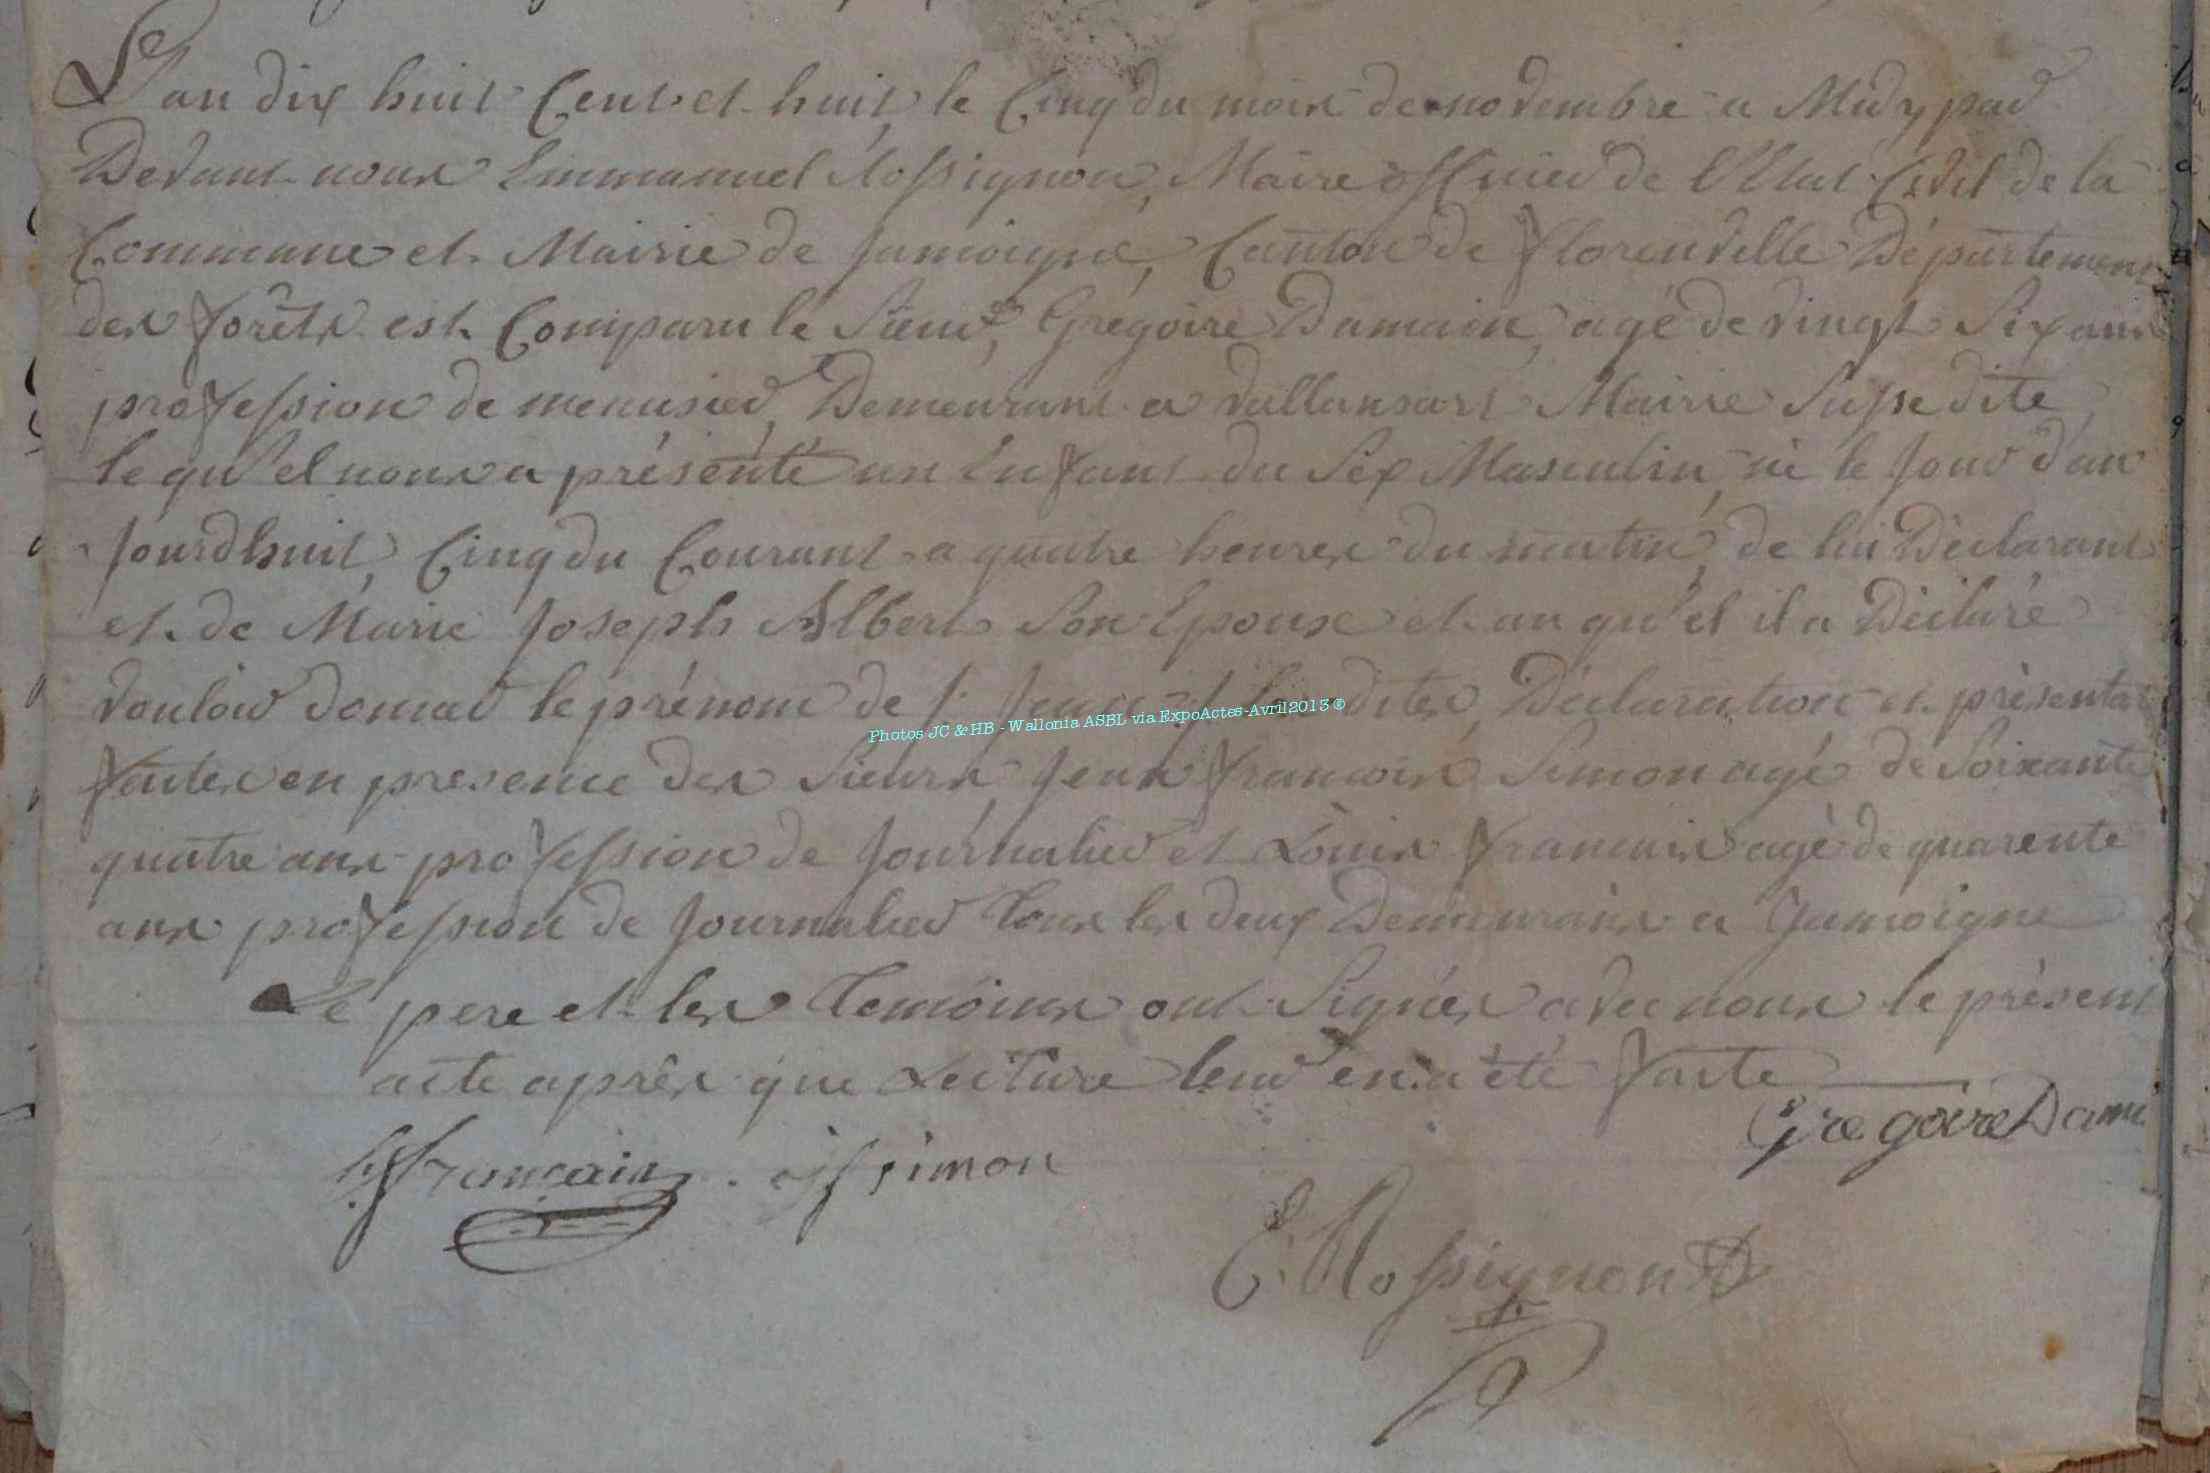 L'an dix huit Cent et huit, le Cinq du mois de novembre a Midy par
Devant nous Emmanuel Rossignon, Maire officier de l'Etat Civil de la
Commune et Mairie de Jamoigne, Canton de florenville Département
des forêts est Comparu le Sieur, Grégoire Damain, agé de vingt Six ans
profession de menusier, Demeurant a vallansart Mairie Susdite,
le qu'el nous a présenté un Enfant du Sex Masculin, né le Jour d'au
Jourdhuit, Cinq du Courant a quatre heures du matin, de lui Déclarant
et de Marie Joseph Albert Son Epouse et au qu'el il a Déclaré
vouloir donner le prénom de Jean dites Déclaration et présentat
faites en presence des Sieurs, Jean françois Simon agé de Soixante
quatre ans profession de Journalier et Louis francais agé de quarente
ans profession de Journalier tous les deux Demeurans a Jamoigne
Le pere et les Temoins ont Signés avec nous le présent
acte après que Lecture leur en a été faite
Gregoire Dami
L. francais . Jf simon
E. Rossignon
Photos JC & HB - Wallonia ASBL via ExpoActes-Avril2013 ©